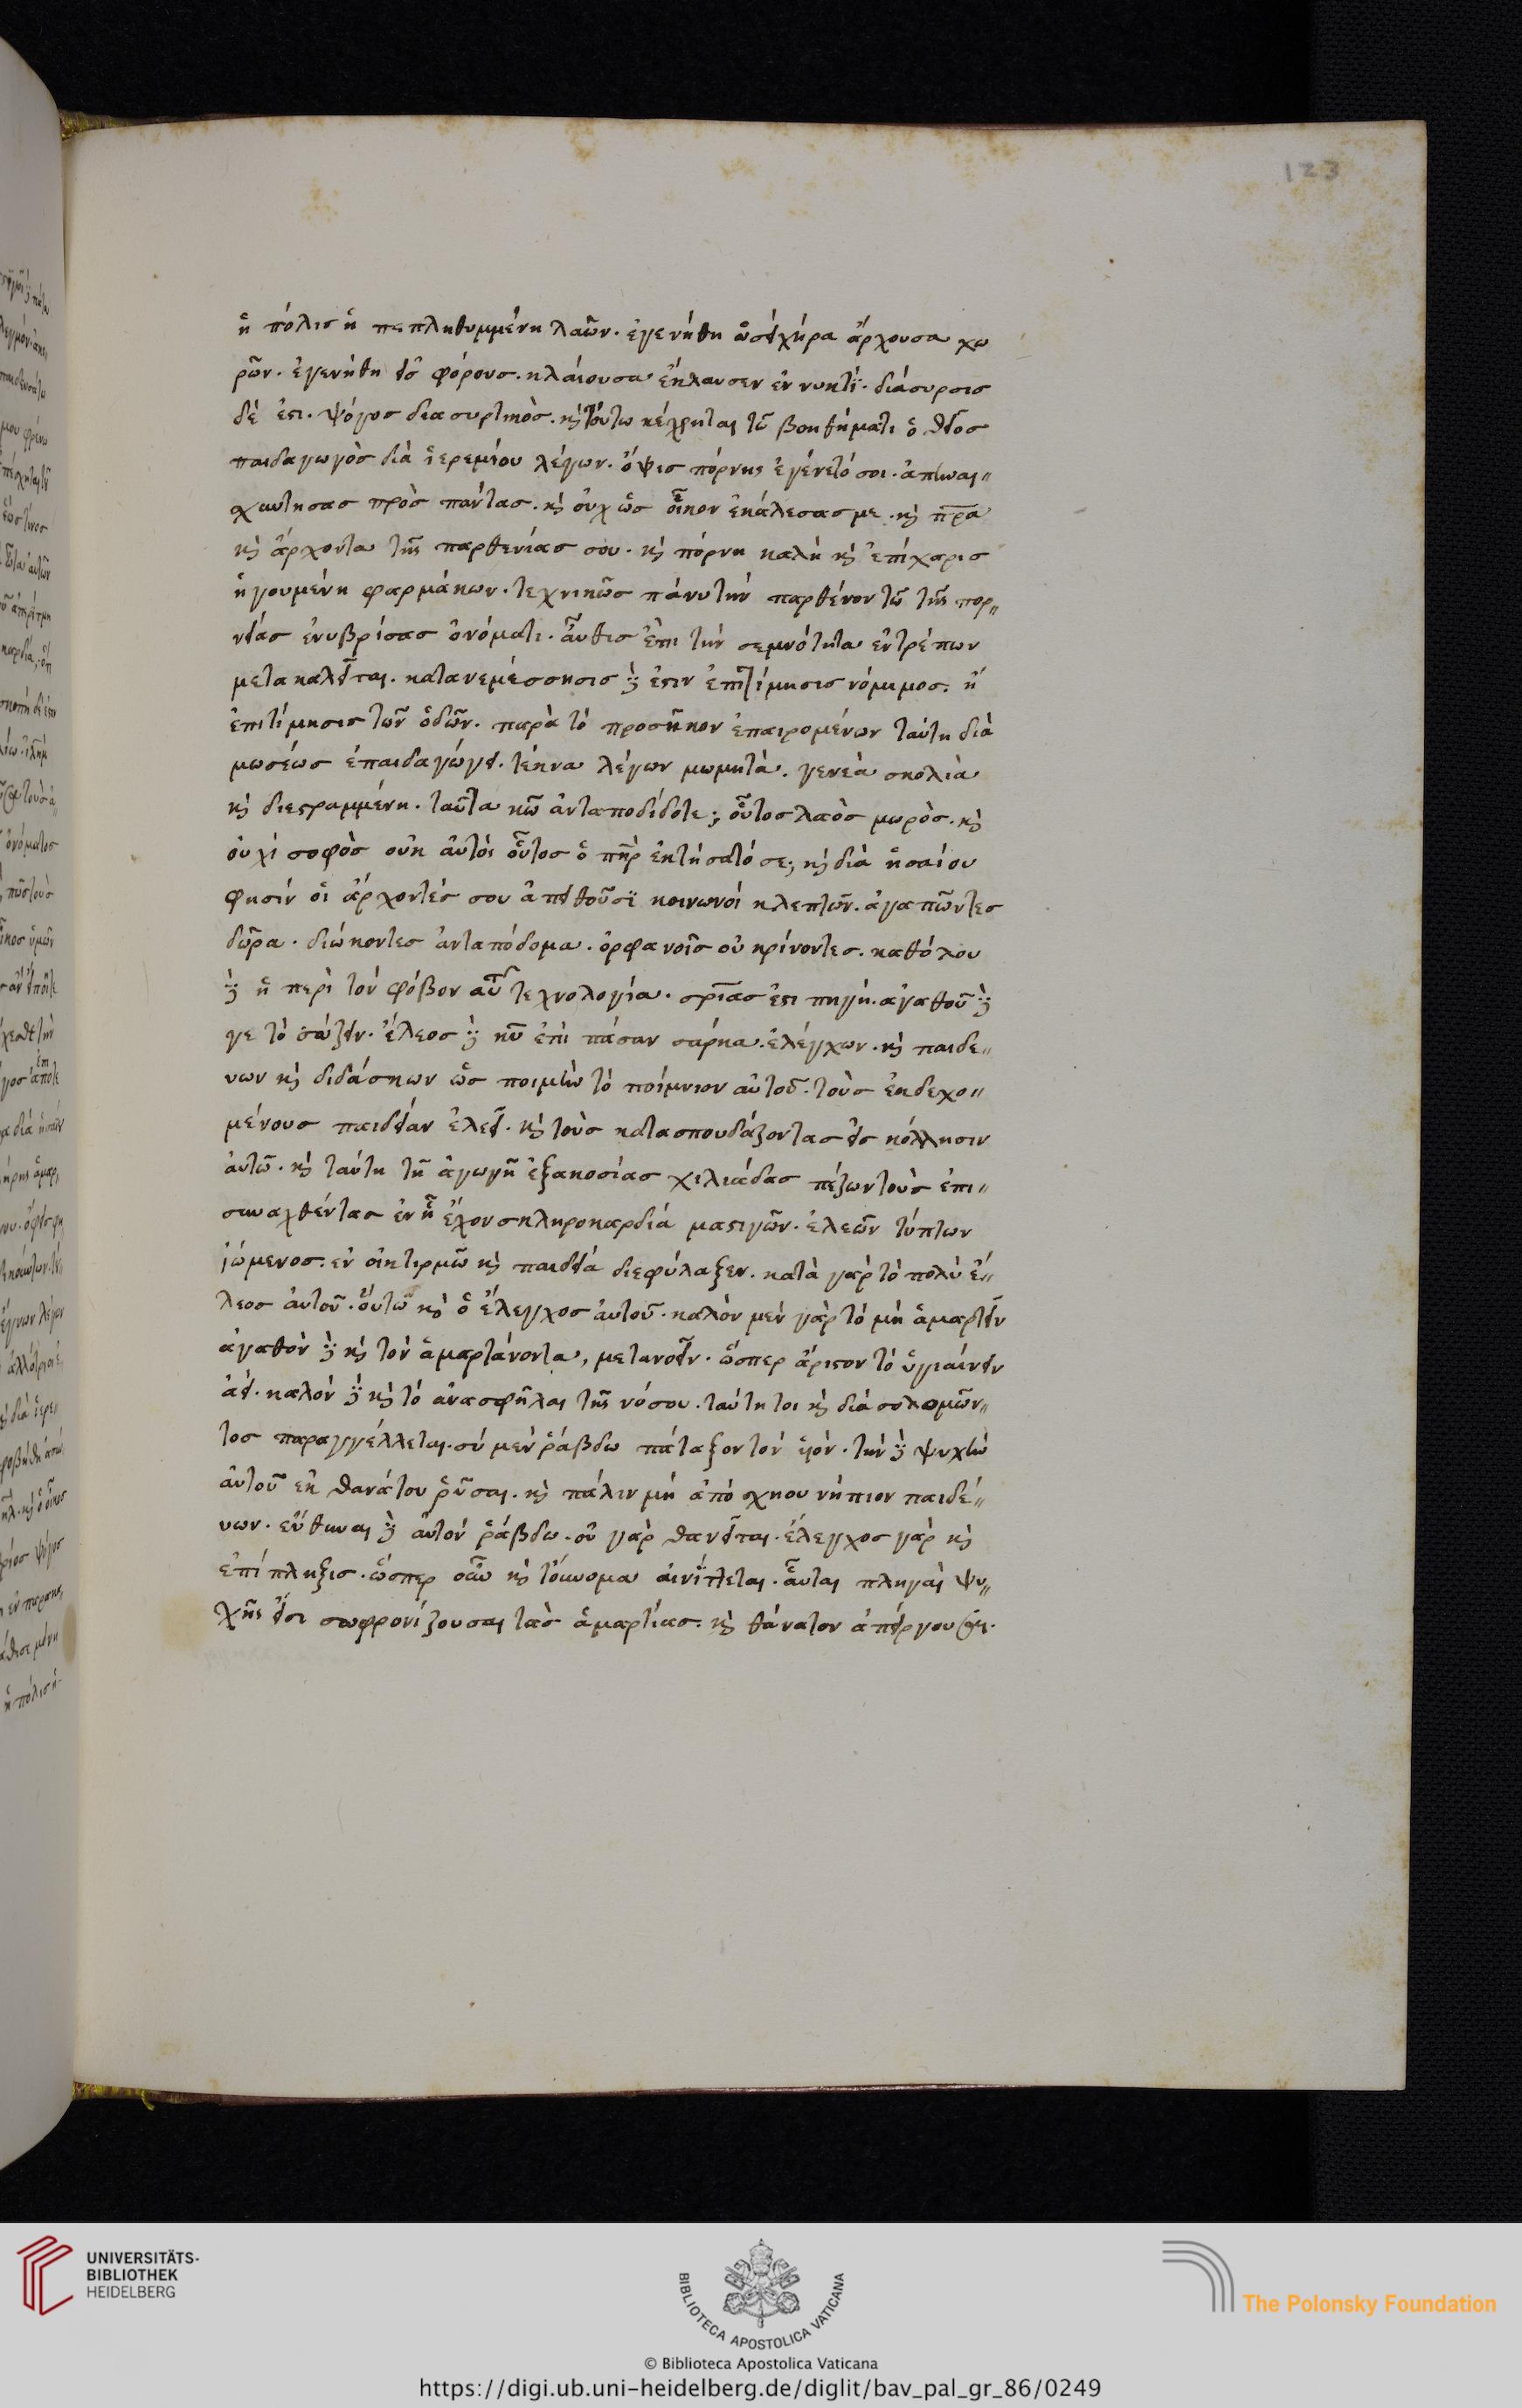 123
ἡ πόλισ ἡ πεπληθυμμένη λαῶν. ἐγενήθη ὡσεὶ χήρα ἄρχουσα χω
ρῶν. ἐγενήθη εἰσ φόρουσ. κλάιουσα ἔκλαυσεν ἐν νυκτῒ. διάσυρσισ
δέ ἐστι. ψόγοσ διασυρτικὸσ. κὶ τούτω κέχρηται τῶ βοηθήματι ὁ θεῖοσ
παιδαγωγὸσ διὰ ἱερεμίου λέγων. ὄψισ πόρνης ἐγένετό σοι. ἀπηναι〃
σχύντησασ πρὸσ πάντασ. κὶ οὐχ ὡσ οἶκον ἐκάλεσασ με. κὶ πρα
κὶ ἄρχοντα τῆς παρθενίασ σου. κὶ πόρνη καλὴ κὶ ἐπίχαρισ
ἡγουμένη φαρμάκων. τεχνικῶσ πάνυ τὴν παρθένον τῶ τῆς πορ〃
νείασ ἐνυβρίσασ ὀνόματι. αὖθισ ἐπι τὴν σεμνότητα ἐντρέπων
μετακαλεῖται. κατανεμέσσησισ δέ ἐστιν ἐπιτίμησισ νόμιμοσ. ἢ
ἐπιτίμησισ τῶν ὁδῶν. παρὰ τὸ προσῆκον ἐπαιρομένων ταύτη διὰ
μωσέωσ ἐπαιδαγώγει. τέκνα λέγων μωμητὰ. γενεὰ σκολιὰ
κὶ διεστραμμένη. ταῦτα κω ἀνταποδίδοτε; οὗτοσ λαὸσ μωρὸσ. κὶ
οὐχὶ σοφὸσ οὐκ αὐτὸσ οὗτοσ ὁ πηρ ἐκτήσατό σε; κὶ διὰ ἡσαίου
φησὶν οἱ ἄρχοντέσ σου ἀπειθοῦσϊ κοινωνοὶ κλεπτῶν. ἀγαπῶντεσ
δῶρα. διώκοντεσ ἀνταπόδομα. ὀρφανοῖσ οὐ κρίνοντεσ. καθόλου
δὲ ἡ περὶ τὸν φόβον αὐτοῦ τεχνολογία. σρίασ ἐστι πηγή. ἀγαθοῦ δέ
γε τὸ σώζειν. ἔλεοσ δὲ κυ ἐπὶ πάσαν σάρκα. ἐλέγχων. κὶ παιδε〃
υων κὶ διδάσκων ὡσ ποιμὴν τὸ ποίμνιον αὐτοῦ. τοὺσ ἐκδεχο〃
μένουσ παιδείαν ἐλεεῖ. κὶ τοὺσ κατασπουδάζοντασ εἰσ κόλλησιν
ἀυτῶ. κὶ ταύτη τῆ ἀγωγῆ ἑξακοσίασ χιλιάδασ πέζων τοὺσ ἐπι〃
συναχθέντασ ἐν ἧ ἔχον σκληροκαρδία μαστιγῶν. ἐλεῶν τύπτων
ἰώμενοσ. ἐν οἰκτιρμῶ κὶ παιδεία διεφύλαξεν. κατὰ γὰρ τὸ πολὺ ἔ〃
λεοσ ἀυτοῦ. ὅυτω κὶ ὁ ἔλεγχοσ ἀυτοῦ. καλὸν μὲν γὰρ τὸ μὴ ἁμαρτεῖν
ἀγαθὸν δὲ κὶ τὸν ἁμαρτάνοντα, μετανοεῖν. ὥσπερ ἄριστον τὸ ὑγιαίνειν
ἀεί. καλὸν δὲ κὶ τὸ ἀνασφῆλαι τῆς νόσου. ταύτη τοι κὶ διὰ σολομῶν〃
τοσ παραγγέλλεται. σὺ μὲν ῥάβδω πάταξον τὸν ϋἱόν. τὴν δὲ ψυχὴν
ἀυτοῦ ἐκ θανάτου ῥῦσαι. κὶ πάλιν μὴ ἀπόσχηου νήπιον παιδέ〃
υων. εὔθυναι δὲ αὐτὸν ῥάβδω. οὐ γὰρ θανεῖται. ἔλεγχοσ γὰρ κὶ
ἐπίπληξισ. ὥσπερ οὖν κὶ τοὔνομα ἀινίττεται. ἆυται πληγαὶ ψυ〃
χῆς εἰσι σωφρονίζουσαι τασ ἁμαρτίασ. κὶ θάνατον ἀπείργουσαι.
UNIVERSITÄTS-
BIBLIOTHEK
HEIDELBERG
BIBLIOTECA APOSTOLICA VATICANA
The Polonsky Foundation
© Biblioteca Apostolica Vaticana
https://digi.ub.uni-heidelberg.de/diglit/bav_pal_gr_86/0249